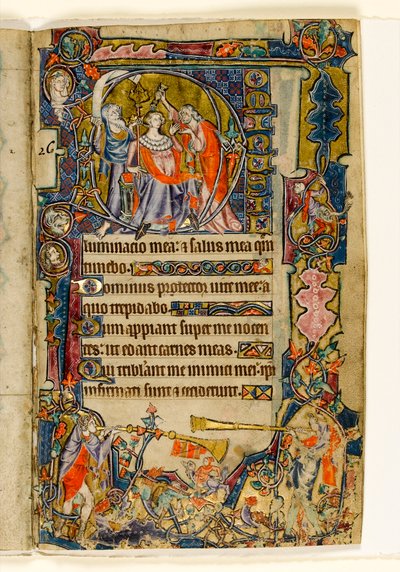 26
Dominus il
luminacio mea: & salus mea quē
timebo.
Dominus protector uite mee: a
quo trepidabo.
Dum appiant super me nocen
tes: ut edant carnes meas.
Qui tribulant me inimici mei: ipi
infirmati sunt & ceciderunt.